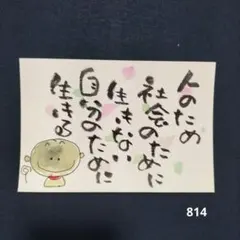 人のため
社会のために
生きない
自分のために
生きる
814